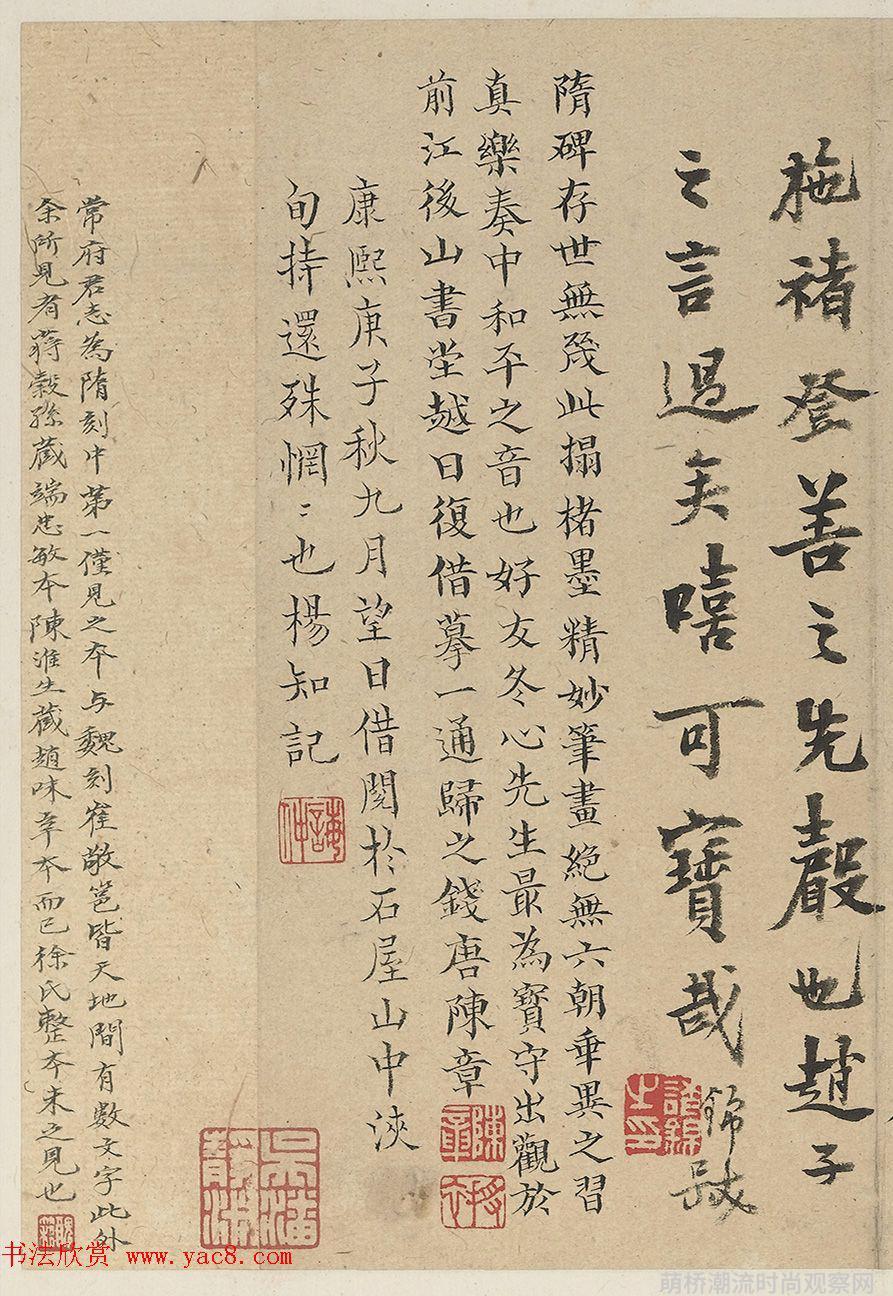 施褚登善之先聲也趙子
之言過矣嘻可寶哉
錦
隋碑存世無幾此搨楮墨精妙筆畫絕無六朝乖異之習
真樂奏中和平之音也好友冬心先生最為寶守出觀於
前江後山書堂越日復借摹一通歸之錢唐陳章
陳章
康熙庚子秋九月望日借閱於石屋山中浹
旬持還殊惘〻也楊知記
常府君志為隋刻中第一僅見之本与魏刻崔敬邕皆天地間有數文字此外
余所見有蔣穀孫藏端忠敏本陳淮生藏趙味辛本而已徐氏整本未之見也
吳潘靜淑
书法欣赏 www.yac8.com
萌桥潮流时尚观察网